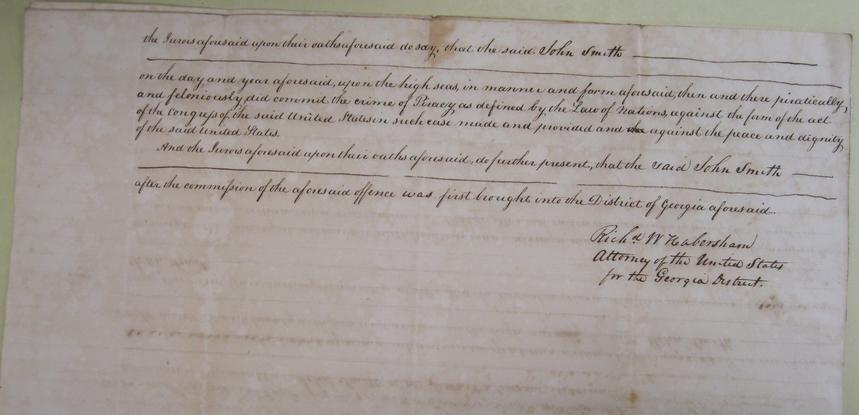 the Jurors aforesaid upon their oaths aforesaid do say, that the said John Smith
on the day and year aforesaid, upon the high seas, in manner and form aforesaid, then and there piratically,
and feloniously, did commit the crime of Piracy, as defined by the Law of Nations, against the form of the act
of the Congress of the said United States in such case made and provided and against the peace and dignity
of the said United States.
And the Jurors aforesaid upon their oaths aforesaid, do further present, that the said John Smith
after the commission of the aforesaid offence was first brought into the District of Georgia aforesaid.
Richd W Habersham
Attorney of the United States
for the Georgia District.